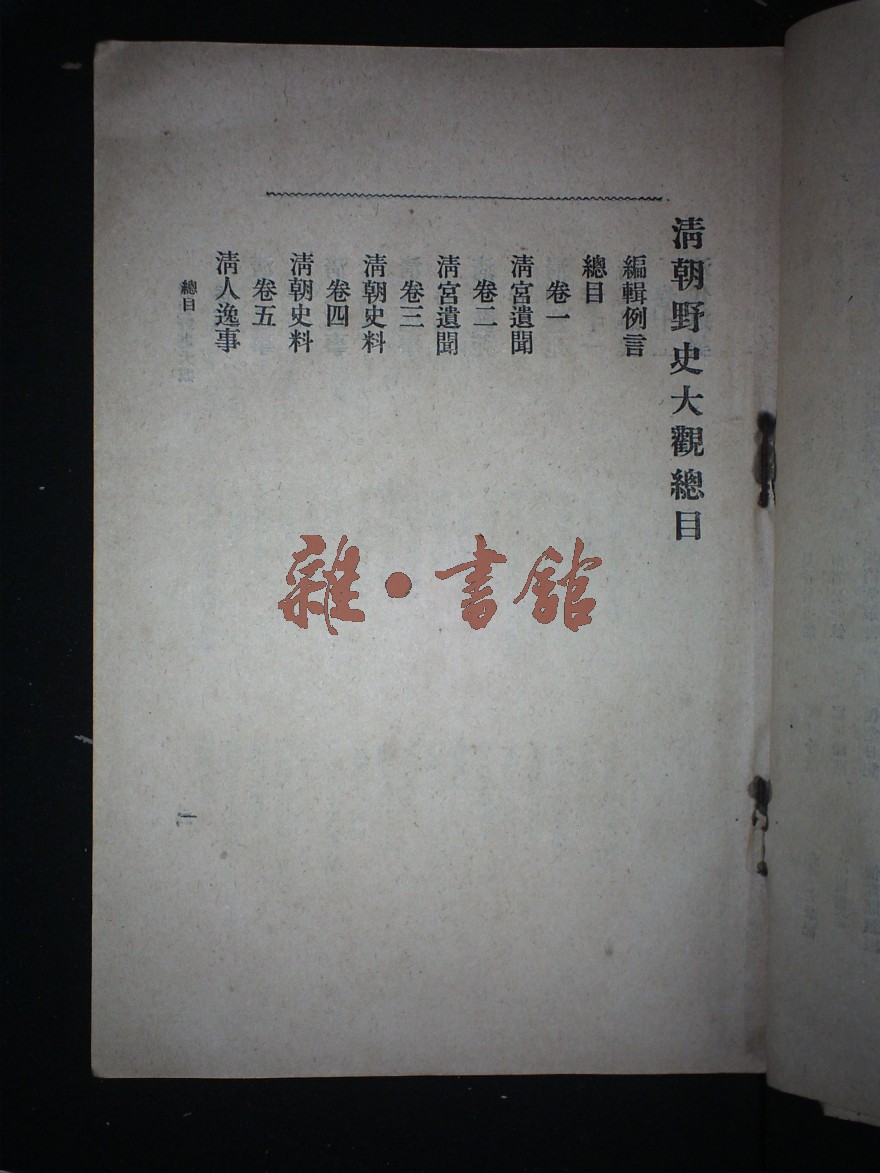 清朝野史大觀總目
編輯例言
總目
卷一
清宮遺聞
卷二
清宮遺聞
卷三
清朝史料
卷四
清朝史料
卷五
清人逸事
總目
一
雜·書館